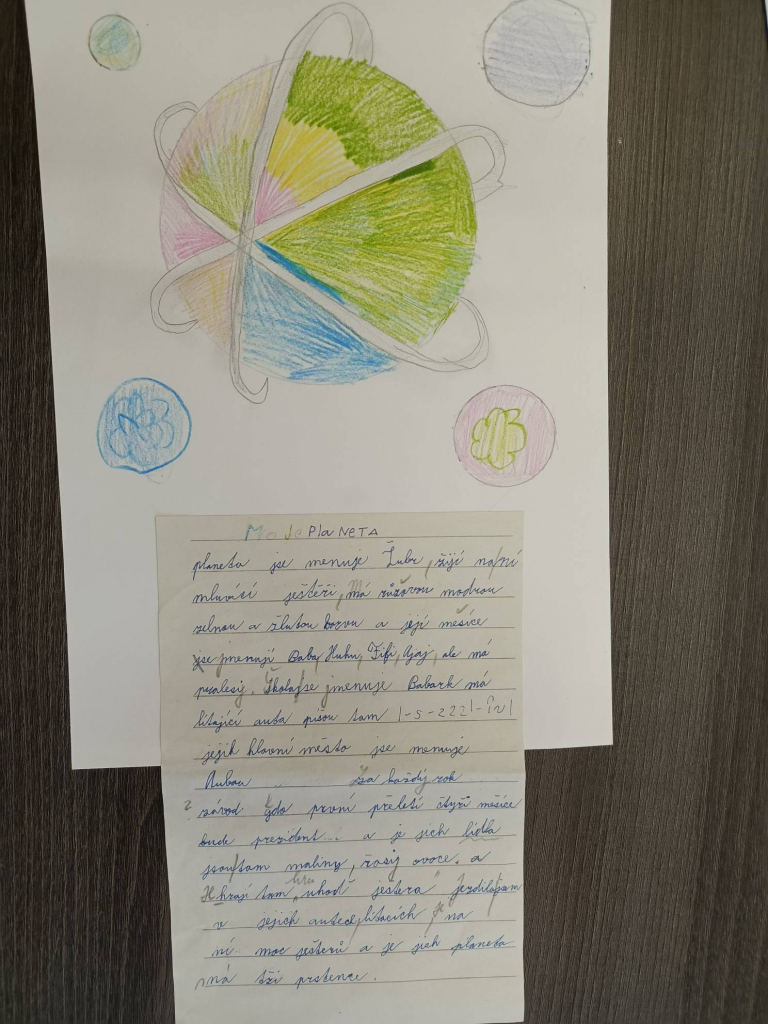 MoJe PlaNETA
planeta jse menuje Žubr, žijí na ní
mluvící ještěři, má růžovou modrou
zelnou a žlutou barvu a její měsíce
jse jmenují Baba, Huhu, Fifi, Gjaj, ale má
pralesy. Škola jse jmenuje Babark má
lítající auta píšou tam 1-5-222!-
jejich hlavní město jse menuje
Rubau za každý rok
? závod gdo první přeletí čtyři měsíce
bude prezident... a je jich
jsou tam maliny, řasy ovoce. a
Hhrají tam hru „uhoď ještera" Jezdila sem
v jejich autech lítacích je na
ní moc ještěrů a je jich planeta
má tři prstence.